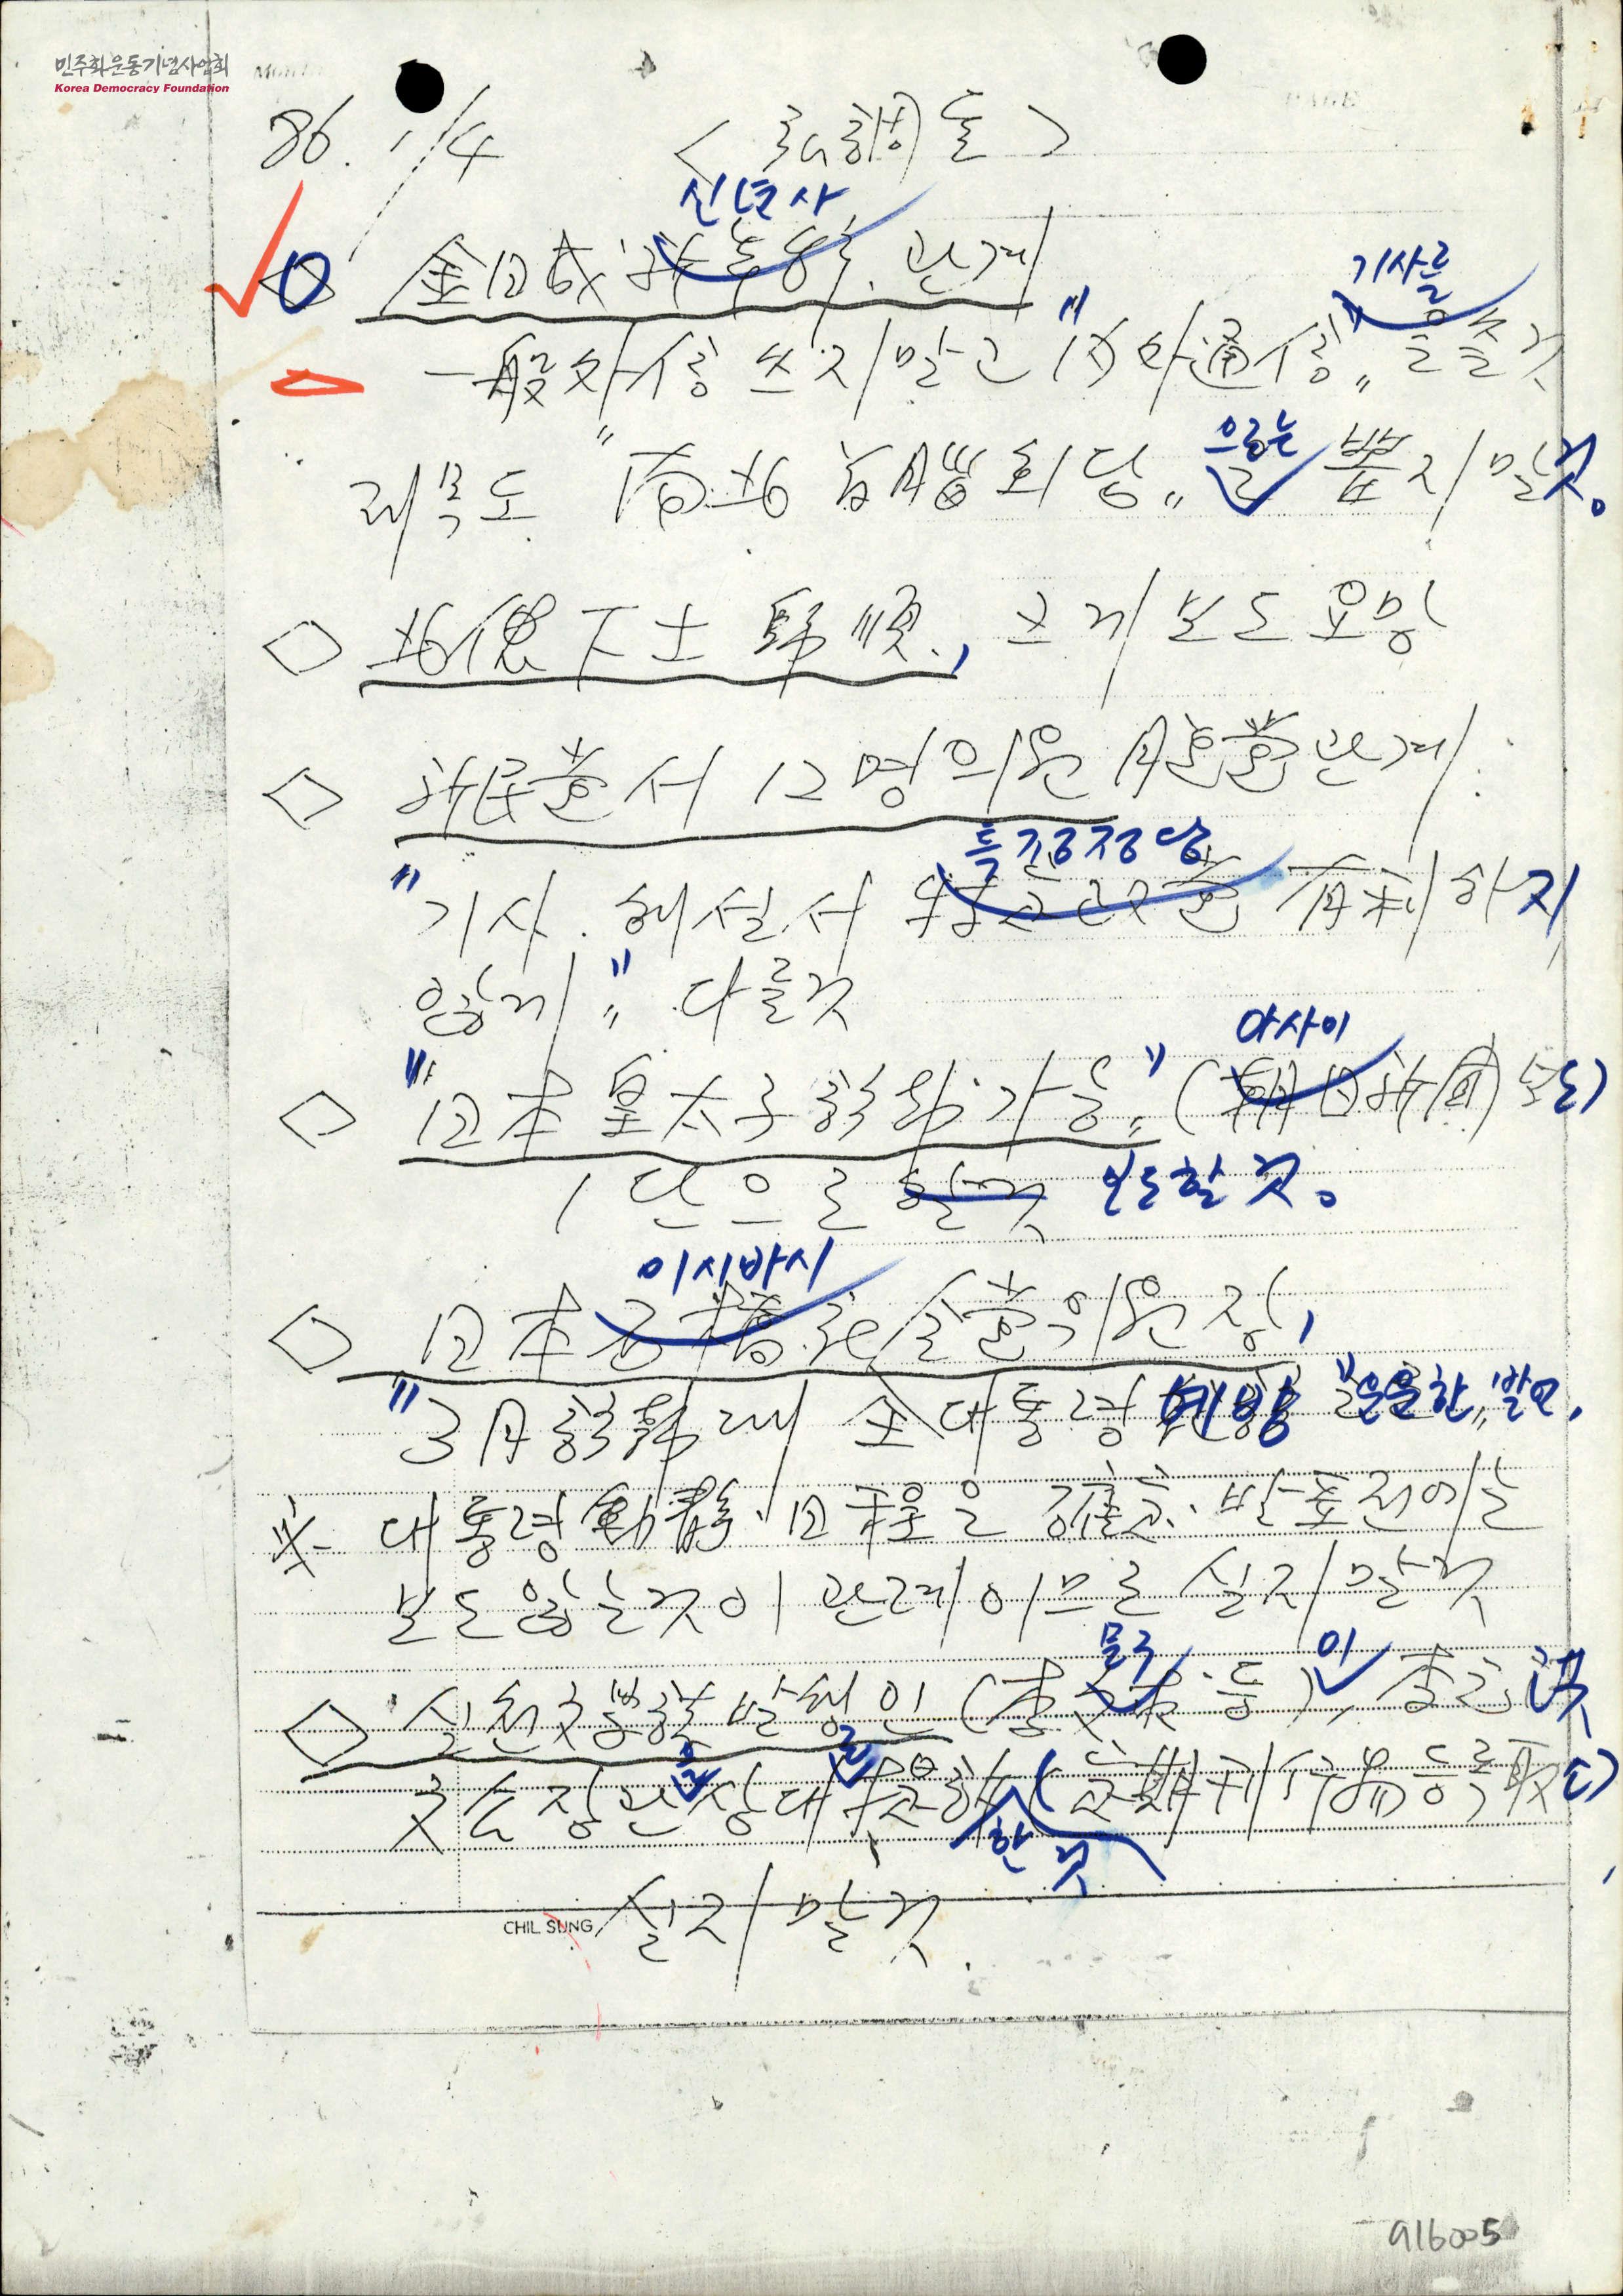 민주화운동기념사업회
Korea Democracy Foundation
86. 1/4 < 弘調 >
신년사
金日成 관계
기사를
"一般外信 쓰지말고 內外通信" 쓸것
으로는
제목도 "南北首腦회담" 뽑지 말것。
北傀下士 歸順, 크게 보도 요망
新民党서 12명 의원 脫党 관계
특정정당
"기사. 해설서 特定政党 有利하지
않게" 다룰것
아사이
"日本 皇太子 訪韓 가능" (朝日新聞 보도)
1단으로 할것 보도할 것。
이시바시
日本 石橋 社会党 위원장,
"3月 訪韓때 全대통령 예방" 운운한 발언,
※ 대통령 動靜・日程은 발표전에는
보도 않는것이 관례이므로 싣지 말것
문구
이
실천文學 발행인 (李文求 등), 李源洪
문공장관 상대 提訴 定期刊行物 등록取
을
를
한 것
CHIL SUNG
싣지 말것
916005